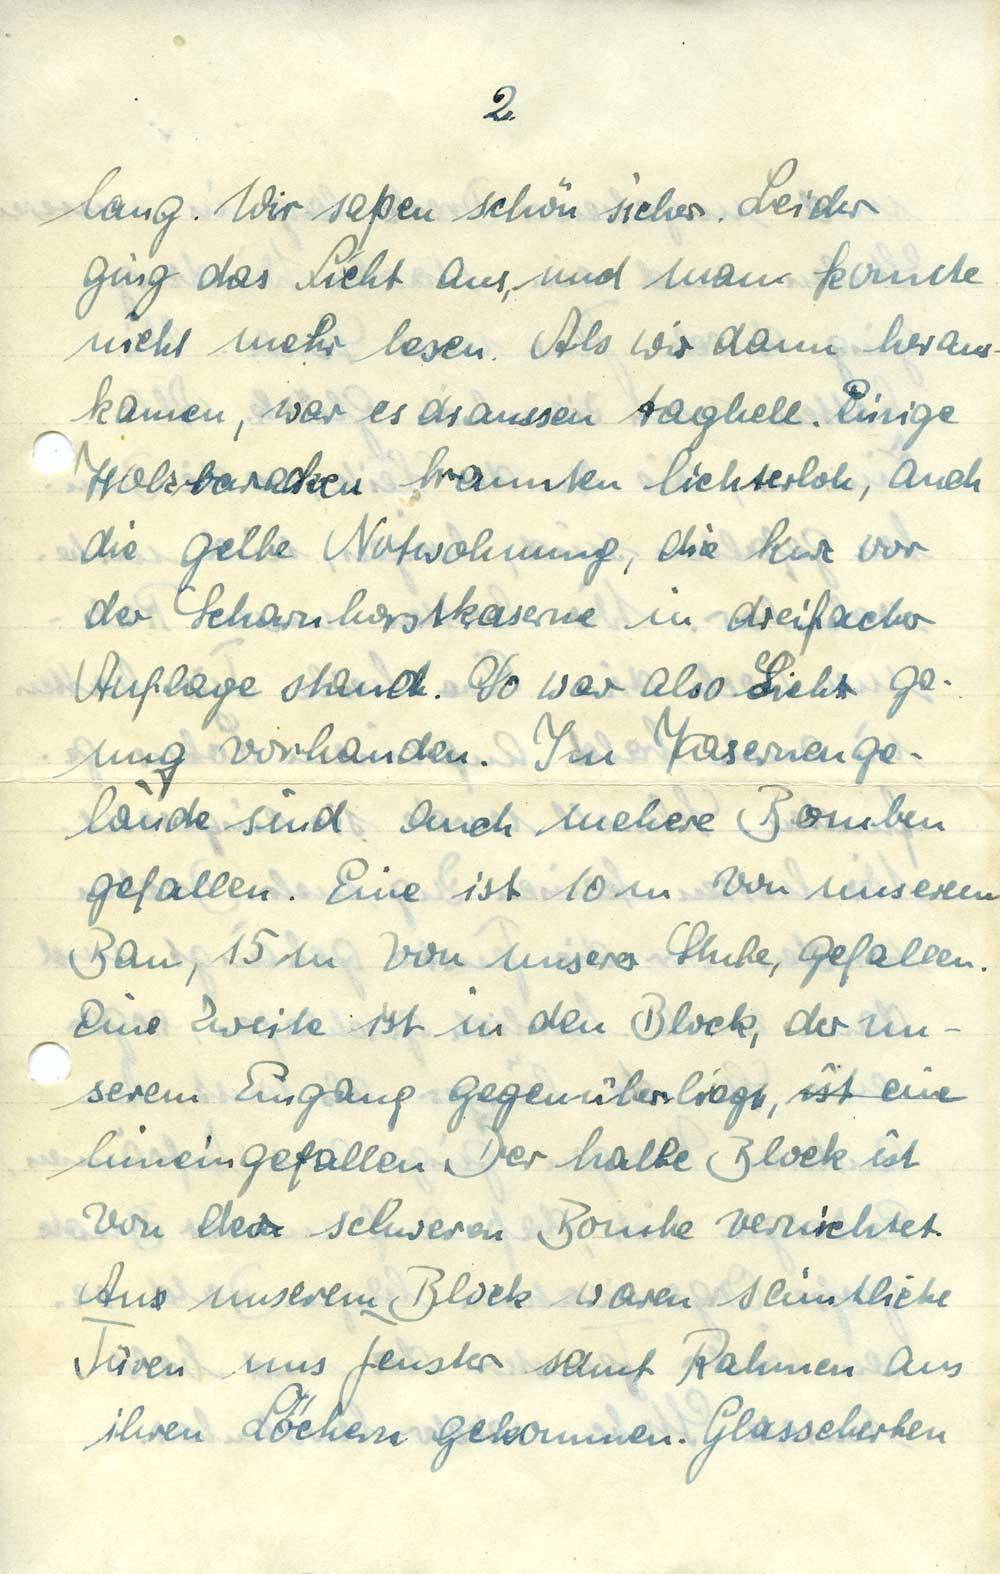 2.
lang. Wir saßen schön sicher. Leider
ging das Licht aus, und man konnte
nicht mehr lesen. Als wir dann heraus-
kamen, war es draussen taghell. Einige
Holzbaracken brannten lichterloh, auch
die gelbe Notwohnung, die kurz vor
der Scharnhorstkaserne in dreifacher
Auflage stand. So war also Licht ge-
nug vorhanden. Im Kasernenge-
lände sind auch mehere Bomben
gefallen. Eine ist 10 m von unserem
Bau, 15 m von unserer Stube, gefallen.
Eine zweite ist in den Block, der un-
serem Eingang gegenüberliegt, ist eine
hineingefallen. Der halbe Block ist
von der schweren Bombe vernichtet.
Aus unserem Block waren sämtliche
Türen uns Fenster samt Rahmen aus
ihren Löchern gekommen. Glasscherben